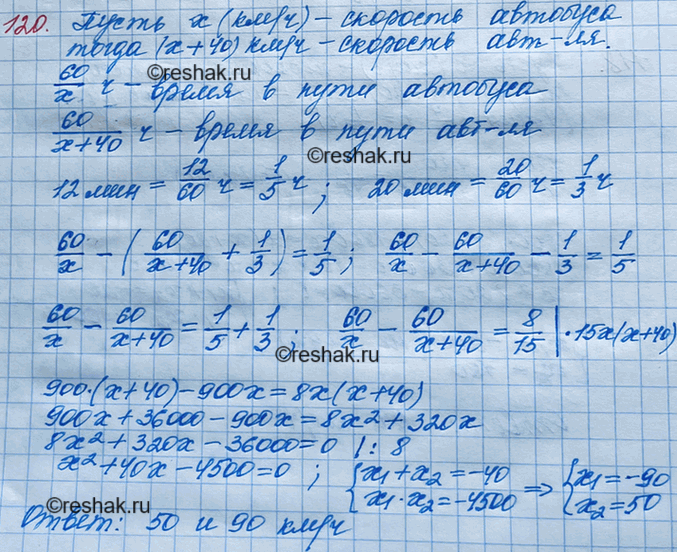 120. Пусть x (км/ч) – скорость автобуса
тогда (x+40) км/ч – скорость авт-ля.
60/x ч – время в пути автобуса
©reshak.ru
60/(x+40) ч – время в пути авт-ля
©reshak.ru
12 мин = 12/60 ч = 1/5 ч ; 20 мин = 20/60 ч = 1/3 ч
60/x – (60/(x+40) + 1/3) = 1/5 ; 60/x – 60/(x+40) – 1/3 = 1/5
60/x – 60/(x+40) = 1/5 + 1/3 ; 60/x – 60/(x+40) = 8/15 | ·15x(x+40)
©reshak.ru
900·(x+40) – 900x = 8x(x+40)
900x + 36000 – 900x = 8x² + 320x
8x² + 320x – 36000 = 0 |: 8
x² + 40x – 4500 = 0 ; { x₁ + x₂ = –40 x₁ · x₂ = –4500 ⇒ { x₁ = –90 x₂ = 50
©reshak.ru
Ответ: 50 и 90 км/ч